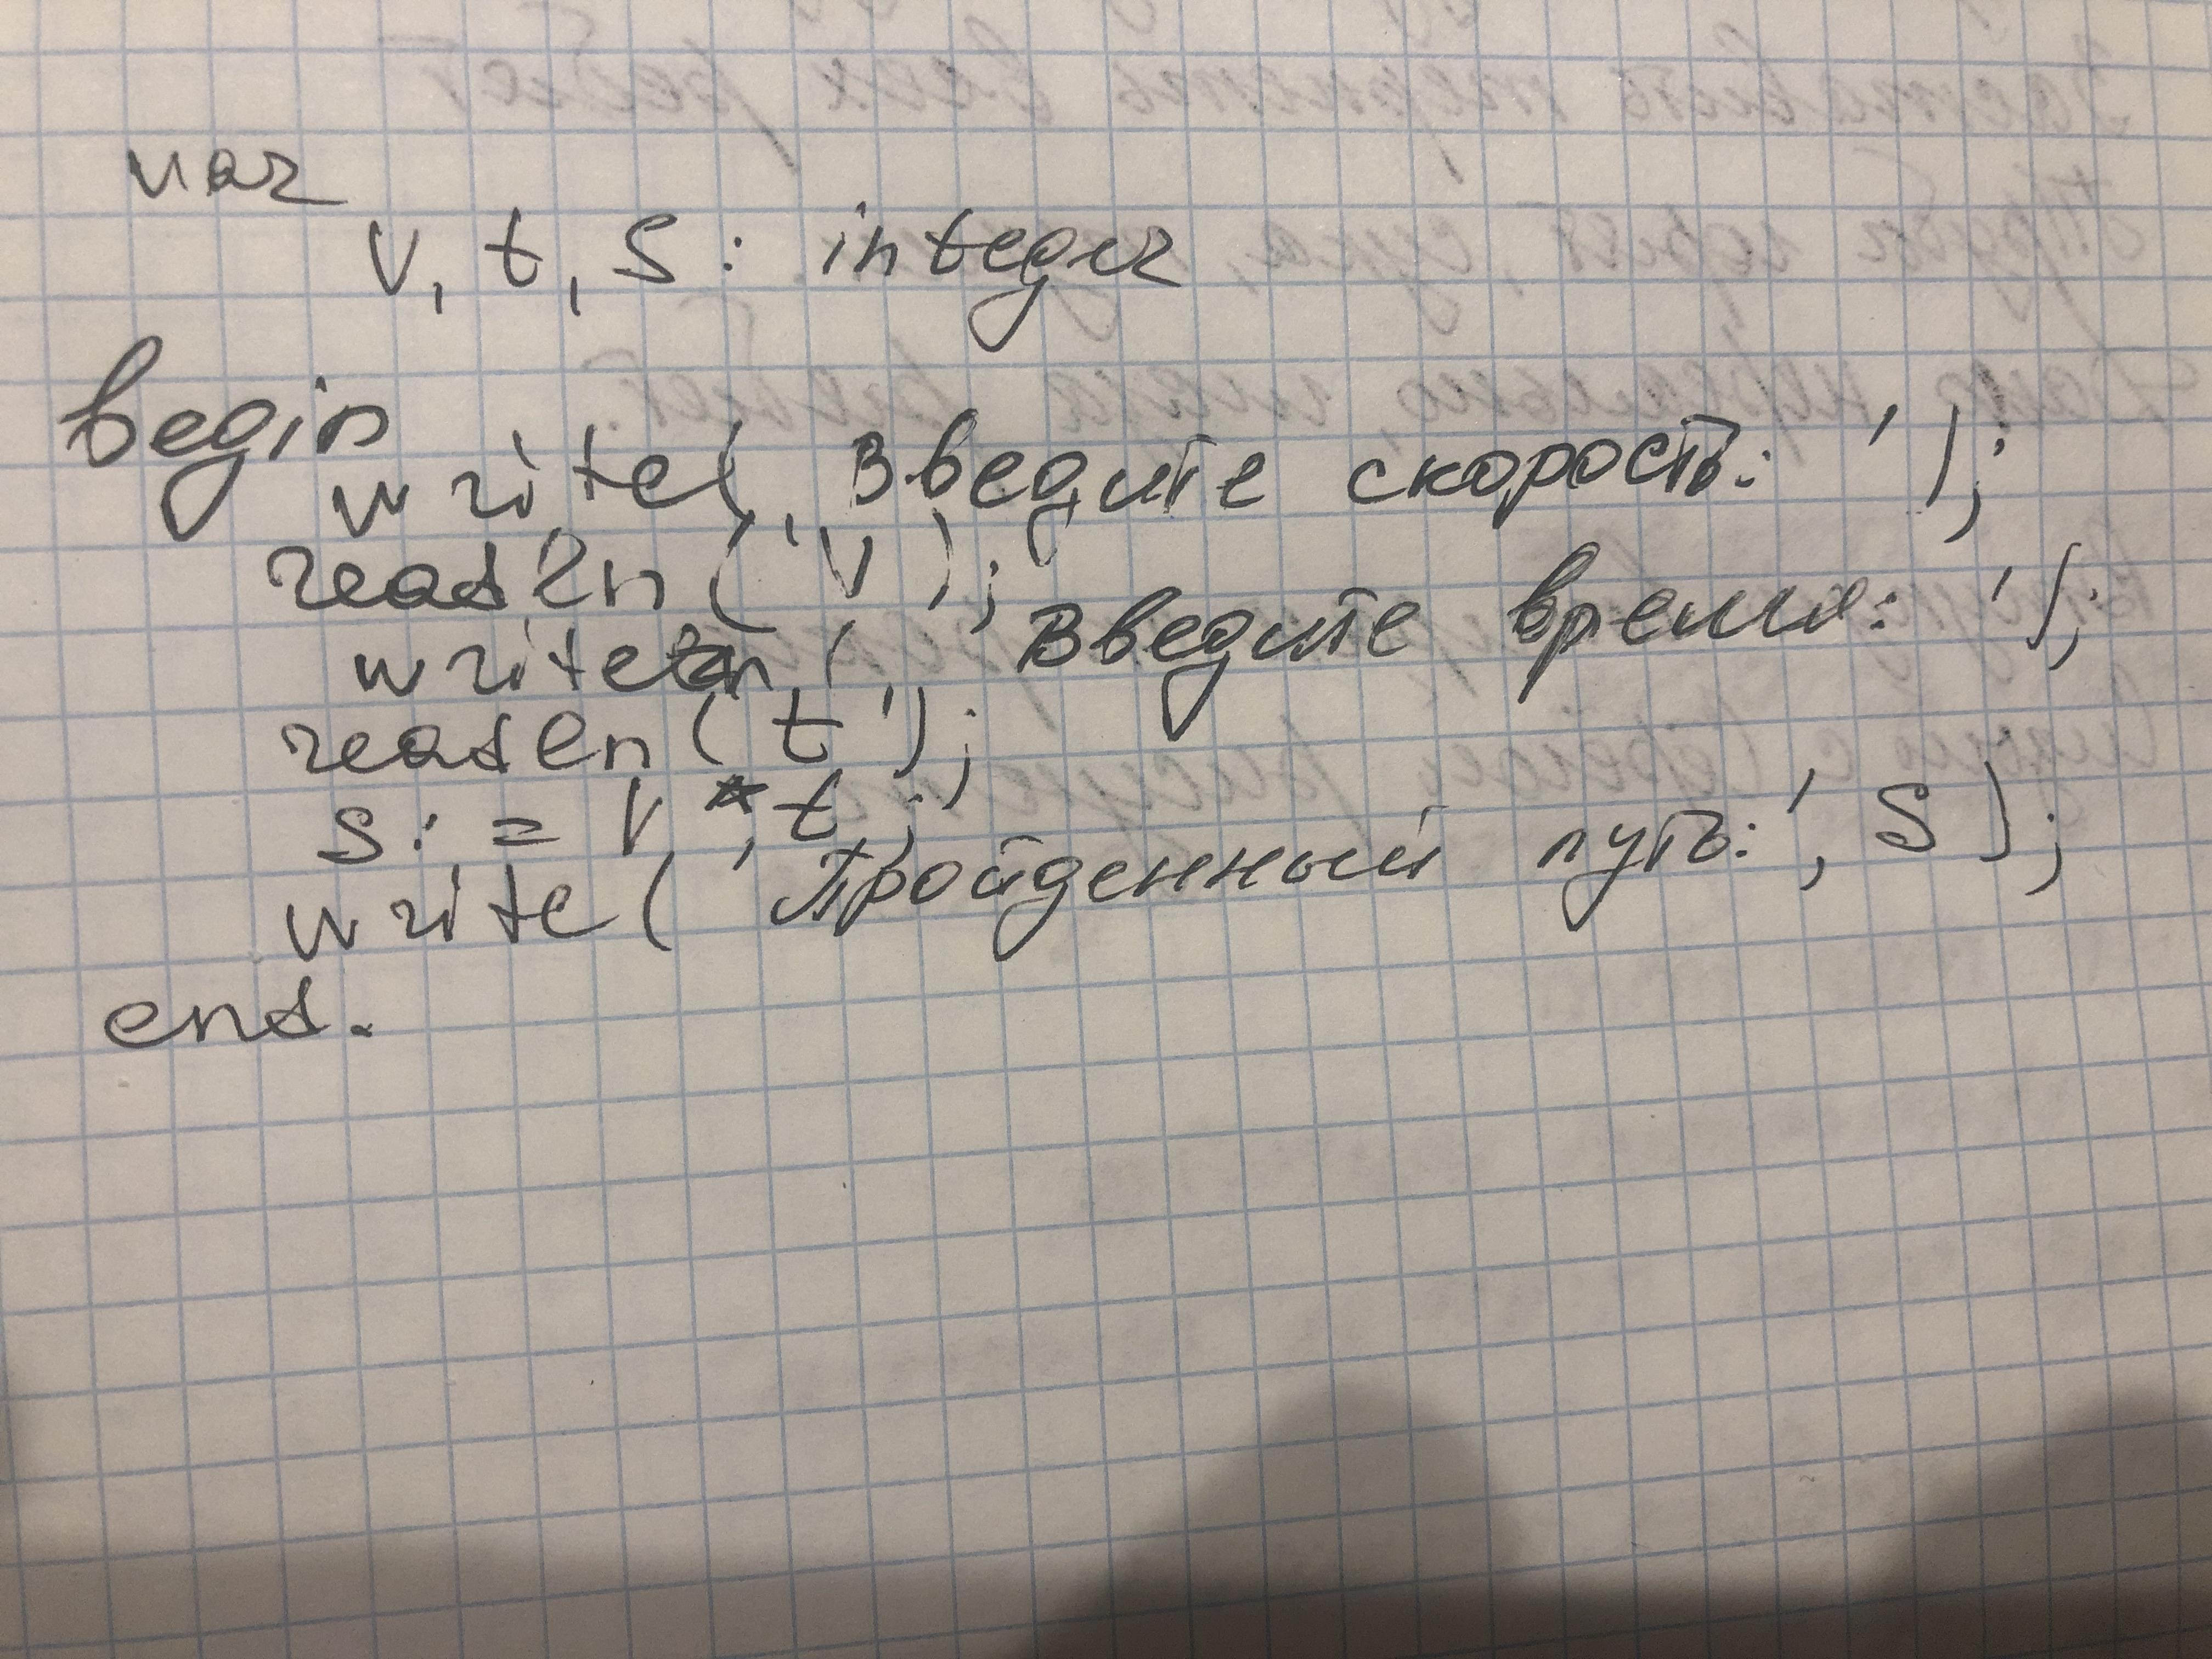 var
v, t, s: integer
begin
write(, Введите скорость: ');
readln('v);
write , (, Введите время: ');
readln(t');
s: = v * t;
write( ' Пройденный путь: ', s);
end.